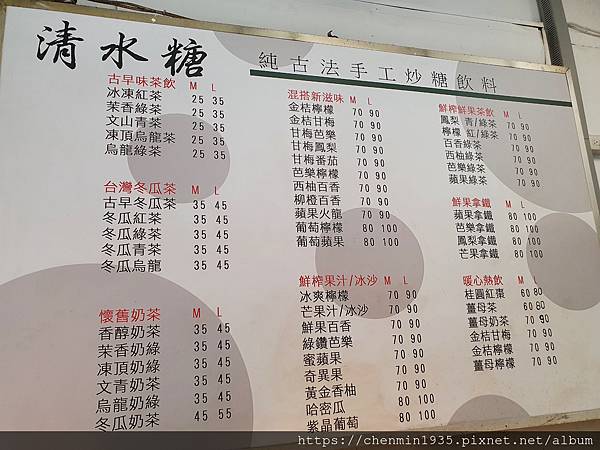 清水糖
純古法手工炒糖飲料
古早味茶飲 M L
冰凍紅茶 25 35
茉香綠茶 25 35
文山青茶 25 35
凍頂烏龍茶 25 35
烏龍綠茶 25 35
台灣冬瓜茶 M L
古早冬瓜茶 35 45
冬瓜紅茶 35 45
冬瓜綠茶 35 45
冬瓜青茶 35 45
冬瓜烏龍 35 45
懷舊奶茶 M L
香醇奶茶 35 45
茉香奶綠 35 45
凍頂奶茶 35 45
文青奶茶 35 45
烏龍奶綠 35 45
冬瓜奶茶 45 55
混搭新滋味 M L
金桔檸檬 70 90
金桔甘梅 70 90
甘梅芭樂 70 90
甘梅鳳梨 70 90
甘梅番茄 70 90
芭樂檸檬 70 90
西柚百香 70 90
柳橙百香 70 90
蘋果火龍 70 90
葡萄檸檬 80 100
葡萄蘋果 80 100
鮮榨果汁/冰沙 M L
冰爽檸檬 70 90
芒果汁/冰沙 70 90
鮮果百香 70 90
綠鑽芭樂 70 90
蜜蘋果 70 90
奇異果 70 90
黃金香柚 70 90
哈密瓜 80 100
紫晶葡萄 80 100
鮮榨鮮果茶飲 M L
鳳梨 青/綠茶 70 90
檸檬 紅/綠茶 70 90
百香綠茶 70 90
西柚綠茶 70 90
芭樂綠茶 70 90
蘋果綠茶 70 90
鮮果拿鐵 M L
蘋果拿鐵 80 100
芭樂拿鐵 80 100
鳳梨拿鐵 80 100
芒果拿鐵 80 100
暖心熱飲 M L
桂圓紅棗 60 80
薑母茶 60 80
薑母奶茶 70 90
金桔甘梅 70 90
金桔檸檬 70 90
薑母檸檬 70 90
https://chenmin1935.pixnet.net/album